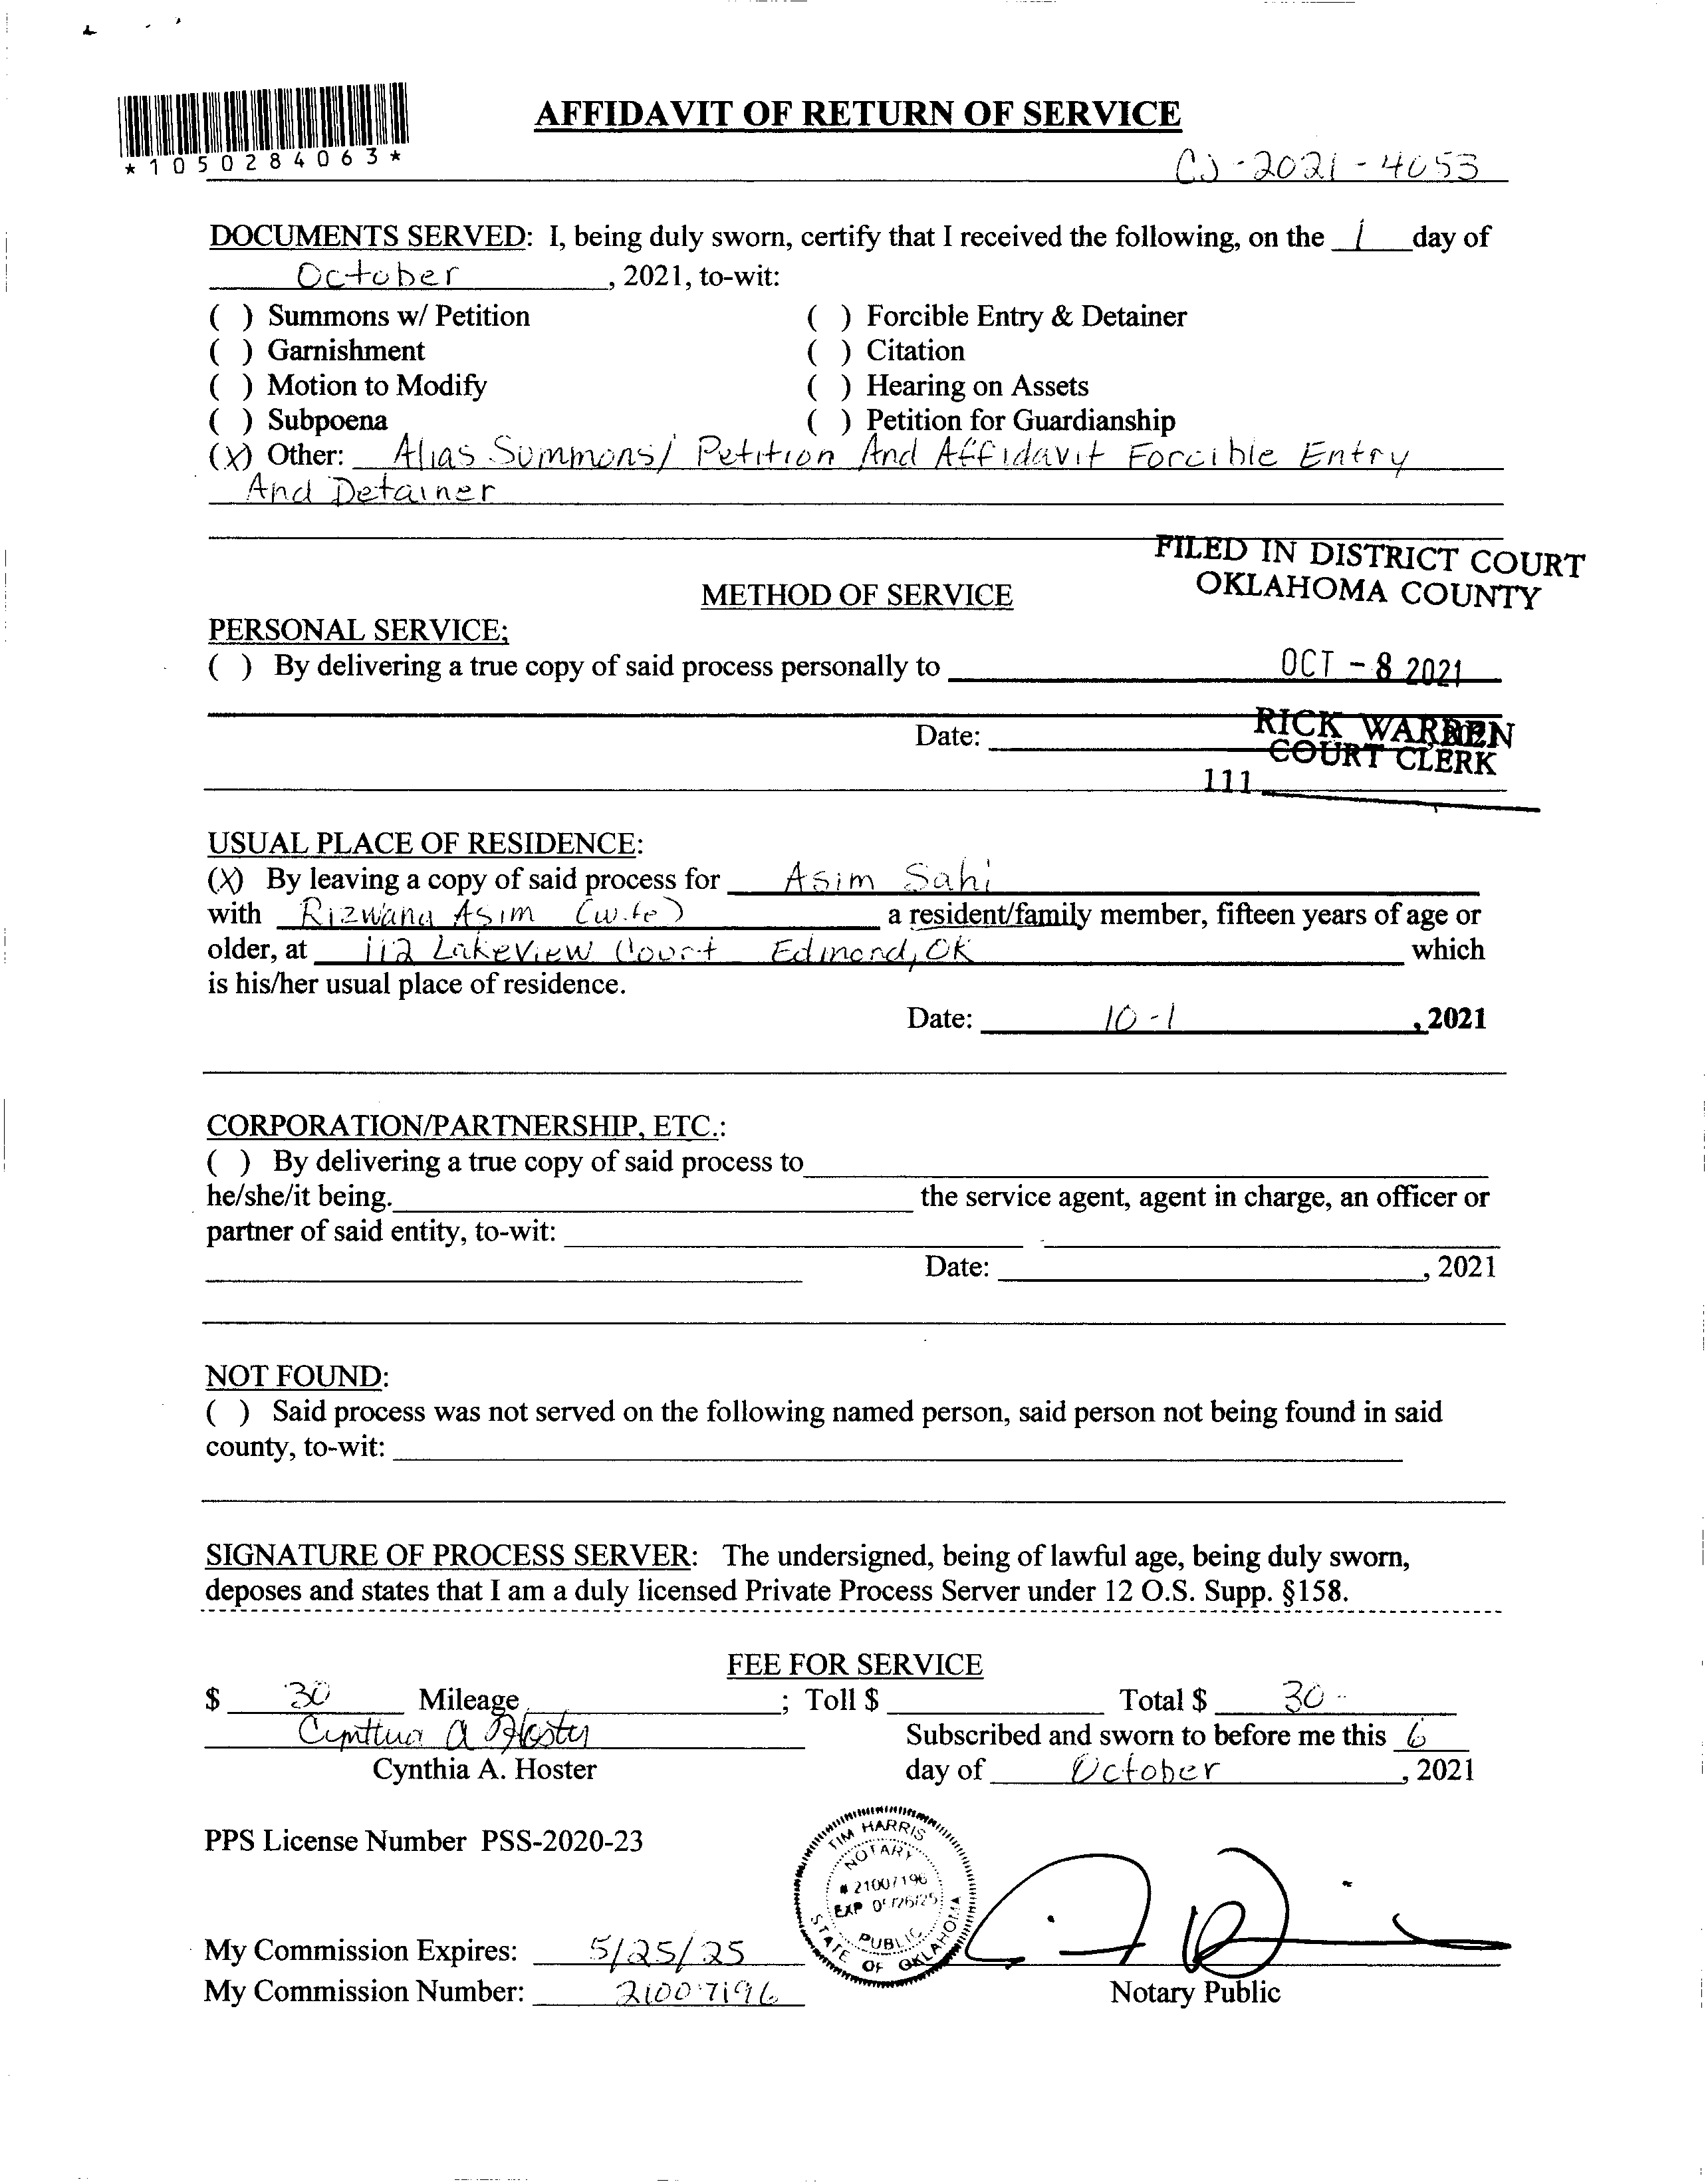 AFFIDAVIT OF RETURN OF SERVICE
*1050284063*
CJ-2021-4053
DOCUMENTS SERVED: I, being duly sworn, certify that I received the following, on the 1 day of
October, 2021, to-wit:
( ) Summons w/ Petition ( ) Forcible Entry & Detainer
( ) Garnishment ( ) Citation
( ) Motion to Modify ( ) Hearing on Assets
( ) Subpoena ( ) Petition for Guardianship
(X) Other: Alias Summons/ Petition And Affidavit Forcible Entry
And Detainer
FILED IN DISTRICT COURT
OKLAHOMA COUNTY
METHOD OF SERVICE
PERSONAL SERVICE;
( ) By delivering a true copy of said process personally to
OCT - 8 2021
Date:
RICK WARREN
COURT CLERK
111
USUAL PLACE OF RESIDENCE:
(X) By leaving a copy of said process for Asim Sahi
with Rizwana Asim (wife) a resident/family member, fifteen years of age or
older, at 112 Lakeview Court Edmond, OK which
is his/her usual place of residence.
Date: 10-1, 2021
CORPORATION/PARTNERSHIP, ETC.:
( ) By delivering a true copy of said process to
he/she/it being. the service agent, agent in charge, an officer or
partner of said entity, to-wit:
Date: , 2021
NOT FOUND:
( ) Said process was not served on the following named person, said person not being found in said
county, to-wit:
SIGNATURE OF PROCESS SERVER: The undersigned, being of lawful age, being duly sworn,
deposes and states that I am a duly licensed Private Process Server under 12 O.S. Supp. §158.
FEE FOR SERVICE
$ 30 Mileage ; Toll $ Total $ 30-
Cynthia A Hoster Subscribed and sworn to before me this 6
Cynthia A. Hoster day of October, 2021
PPS License Number PSS-2020-23
TIM HARRIS
NOTARY
# 21007196
EXP 05/26/25
PUBLIC
STATE OF OKLAHOMA
My Commission Expires: 5/25/25
My Commission Number: 21007196 Notary Public